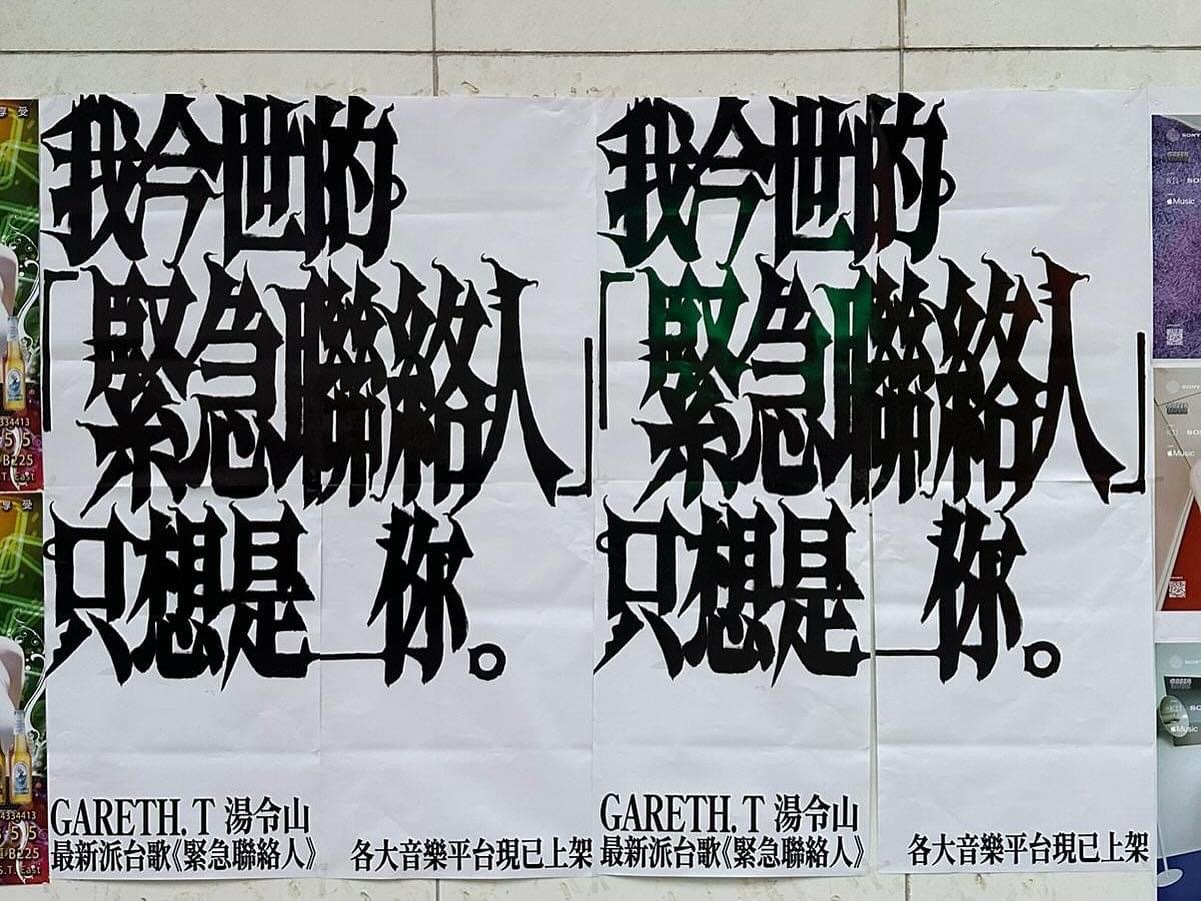 享 受
334413
5/5
B225
S.T. East
享 受
4334413
5/5
B225
S.T. East
我今世的
「緊急聯絡人」
只想是__你。
GARETH.T 湯令山
最新派台歌《緊急聯絡人》
各大音樂平台現已上架
我今世的
「緊急聯絡人」
只想是__你。
GARETH.T 湯令山
最新派台歌《緊急聯絡人》
各大音樂平台現已上架
SONY
Music
SONY
Music
SONY
Music